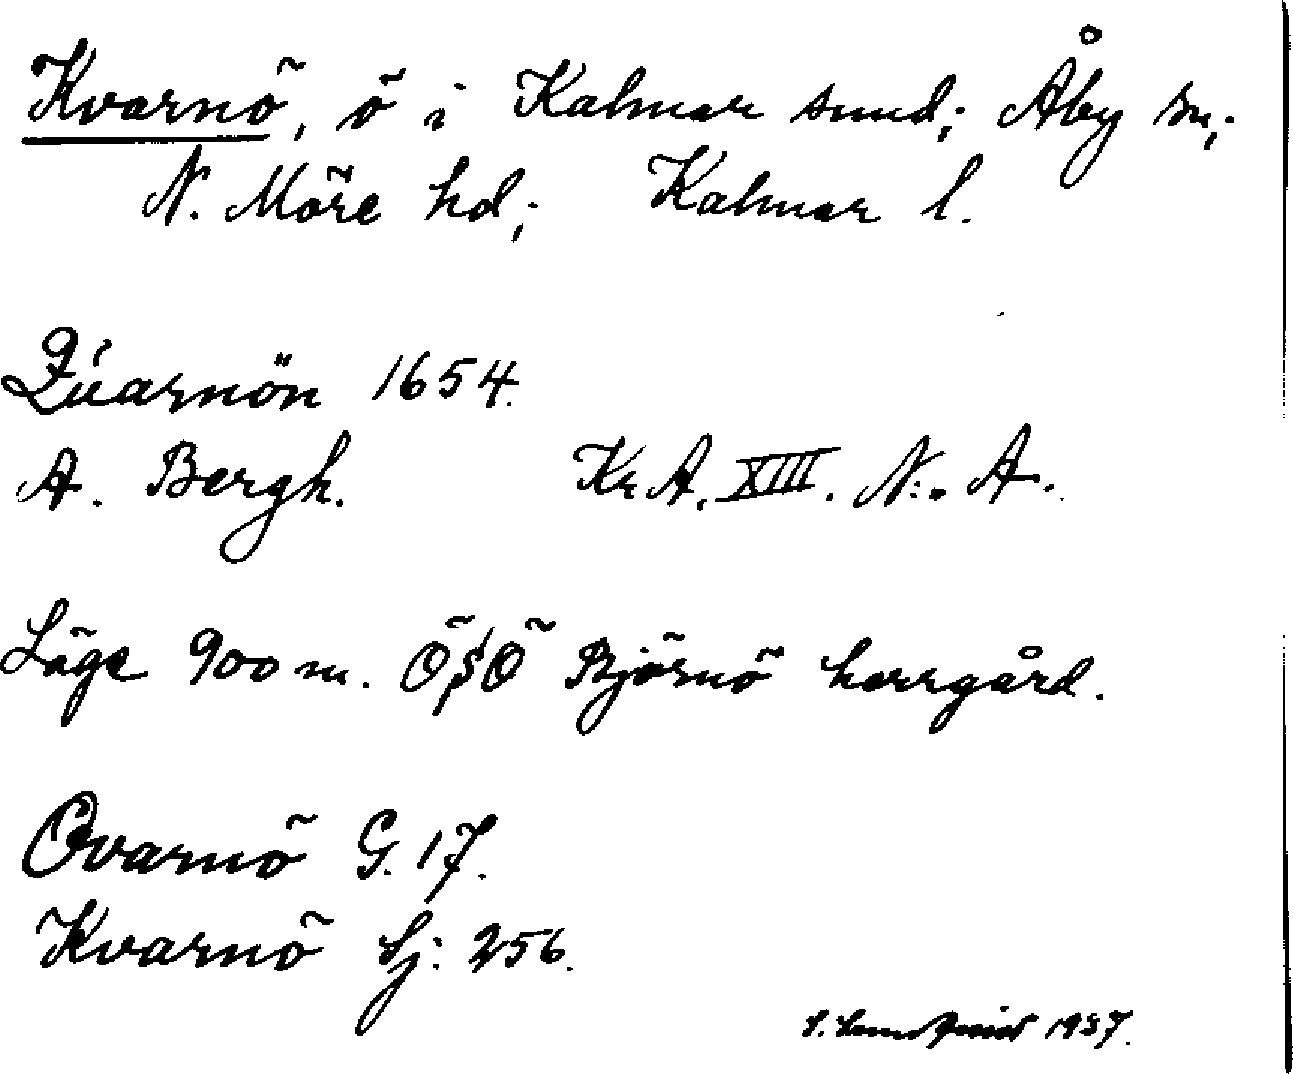 Kvarnö, ö i Kalmar sund; Åby sn;
N. Möre hd; Kalmar l.
Qúarnön 1654.
A. Bergh. Kr. A. XIII. N:. A.
Läge 900 m. ÖSÖ Björnö herrgård.
Qvarnö G. 17.
Kvarnö Sj: 256.
1937.